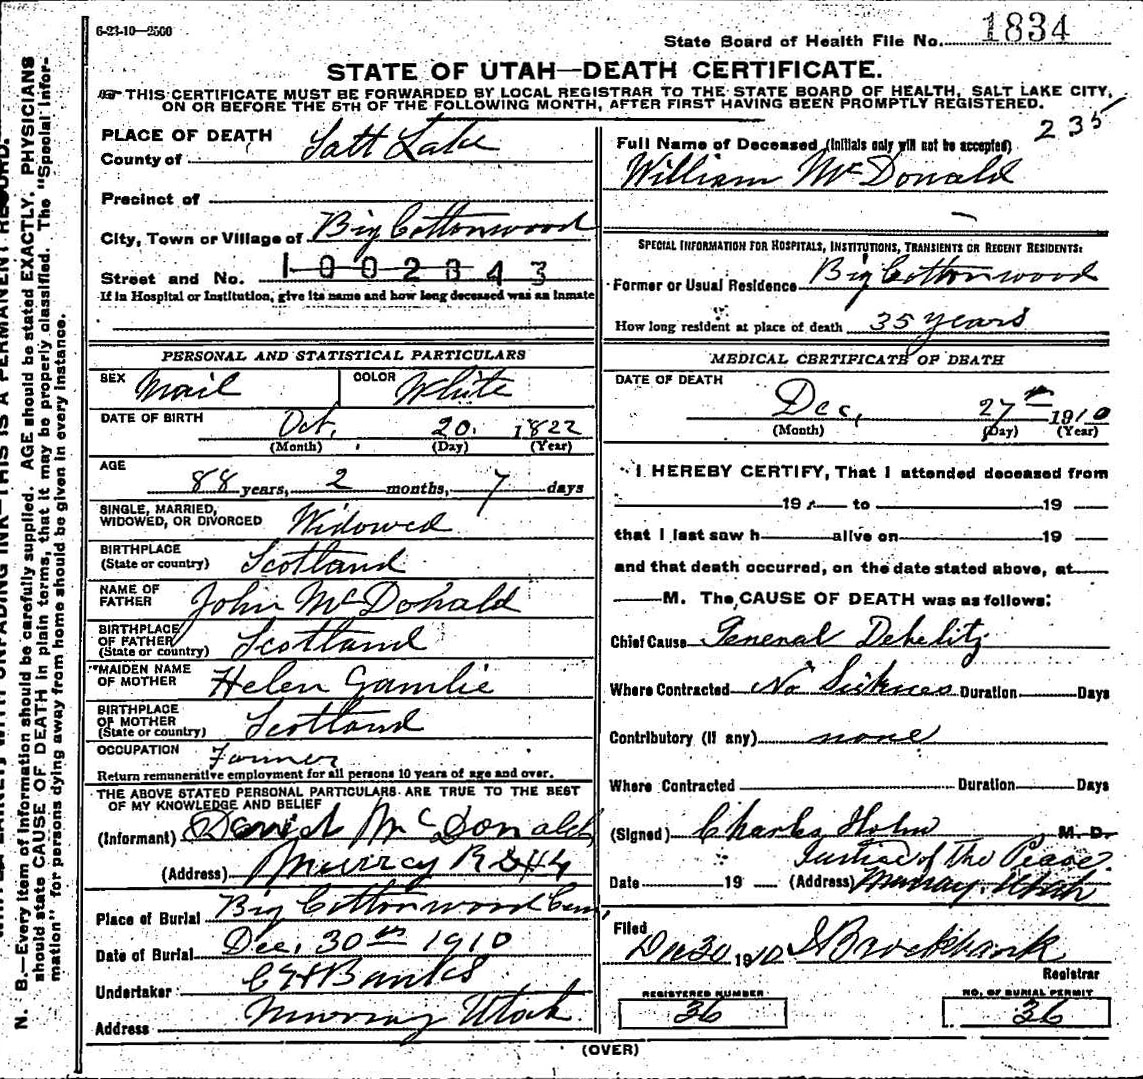 6-23-10—2500
State Board of Health File No. 1834
STATE OF UTAH—DEATH CERTIFICATE.
THIS CERTIFICATE MUST BE FORWARDED BY LOCAL REGISTRAR TO THE STATE BOARD OF HEALTH, SALT LAKE CITY,
ON OR BEFORE THE 5TH OF THE FOLLOWING MONTH, AFTER FIRST HAVING BEEN PROMPTLY REGISTERED.
235
PLACE OF DEATH
County of Salt Lake
Precinct of
City, Town or Village of Big Cottonwood
Street and No. 1002843
If in Hospital or Institution, give its name and how long deceased was an inmate
PERSONAL AND STATISTICAL PARTICULARS
SEX Mail COLOR White
DATE OF BIRTH Oct. 20. 1822
(Month) (Day) (Year)
AGE
88 years, 2 months, 7 days
SINGLE, MARRIED,
WIDOWED, OR DIVORCED Widowed
BIRTHPLACE
(State or country) Scotland
NAME OF
FATHER John McDonald
BIRTHPLACE
OF FATHER
(State or country) Scotland
MAIDEN NAME
OF MOTHER Helen Gamlie
BIRTHPLACE
OF MOTHER
(State or country) Scotland
OCCUPATION Farmer
Return remunerative employment for all persons 10 years of age and over.
THE ABOVE STATED PERSONAL PARTICULARS ARE TRUE TO THE BEST
OF MY KNOWLEDGE AND BELIEF
(Informant) David McDonald
(Address) Murray R D #4
Place of Burial Big Cottonwood Cem
Date of Burial Dec. 30th 1910
Undertaker C H Banks
Address Murray Utah.
Full Name of Deceased (Initials only will not be accepted)
William McDonald
SPECIAL INFORMATION FOR HOSPITALS, INSTITUTIONS, TRANSIENTS OR RECENT RESIDENTS:
Former or Usual Residence Big Cottonwood
How long resident at place of death 35 years
MEDICAL CERTIFICATE OF DEATH
DATE OF DEATH
Dec, 27th 1910
(Month) (Day) (Year)
I HEREBY CERTIFY, That I attended deceased from
19 to 19
that I last saw h alive on 19
and that death occurred, on the date stated above, at
M. The CAUSE OF DEATH was as follows:
Chief Cause General Debelity
Where Contracted No Sickness Duration Days
Contributory (if any) none
Where Contracted Duration Days
(Signed) Charles Holm M. D.
Justice of The Peace
Date 19 (Address) Murray, Utah
Filed
Dec 30 1910 Brockbank
Registrar
REGISTERED NUMBER
36
NO. OF BURIAL PERMIT
36
(OVER)
N. B.—Every item of information should be carefully supplied. AGE should be stated EXACTLY. PHYSICIANS
should state CAUSE OF DEATH in plain terms, that it may be properly classified. The "Special Infor-
mation" for persons dying away from home should be given in every instance.